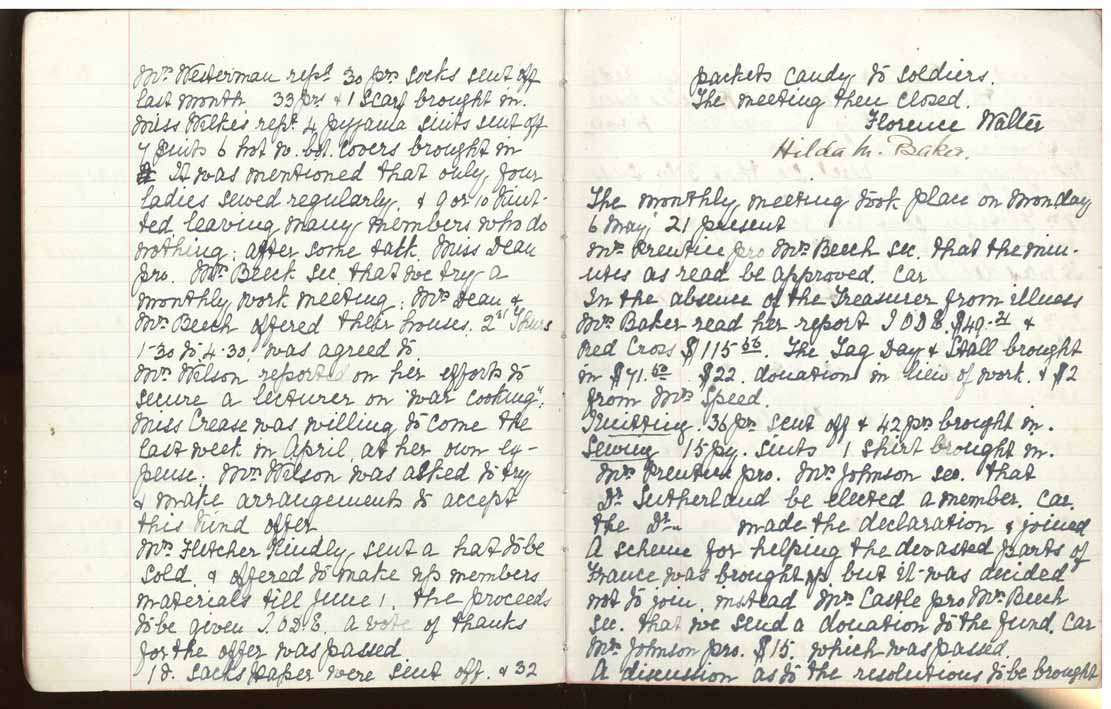 Mrs Westerman rept 30 prs socks sent off
last month 33 prs & 1 scarf brought in.
Miss Wilkes rept 4 pyjama suits sent off
7 suits 6 hot w. bot. covers brought in
It was mentioned that only four
ladies sewed regularly, & 9 or 10 knit-
ted leaving many members who do
nothing; after some talk Miss Dean
pro. Mrs Beech sec that we try a
monthly work meeting; Mrs Dean &
Mrs Beech offered their houses. 2nd Thurs
1-30 to 4.30, was agreed to.
Mrs Wilson reported on her efforts to
secure a lecturer on "war cooking".
Miss Crease was willing to come the
last week in April, at her own ex-
pense. Mrs Wilson was asked to try
& make arrangements to accept
this kind offer
Mrs Fletcher kindly sent a hat to be
sold, & offered to make up members
materials till June 1, the proceeds
to be given I.O.D.E. a vote of thanks
for the offer was passed
18 sacks paper were sent off. & 32
packets candy to soldiers.
The meeting then closed.
Florence Walter
Hilda M. Baker.
The monthly meeting took place on Monday
6 May 21 present
Mrs Prentice pro Mrs Beech sec. that the min-
utes as read be approved. Car
In the absence of the Treasurer from illness
Mrs Baker read her report I O D E. $49.21 &
Red Cross $115.56. The Tag Day & Stall brought
in $71.50 $22. donation in lieu of work. & $2
from Mrs Speed.
Knitting. 36 prs sent off & 42 prs brought in.
Sewing 15 py. suits 1 shirt brought in.
Mrs Prentice pro. Mrs Johnson sec. that
Dr Sutherland be elected a member. Car.
the Dr made the declaration & joined
A scheme for helping the devasted parts of
France was brought up, but it was decided
not to join, instead Mrs Castle pro Mrs Beech
sec. that we send a donation to the fund. Car
Mrs Johnson pro. $15. which was passed.
A discussion as to the resolutions to be brought